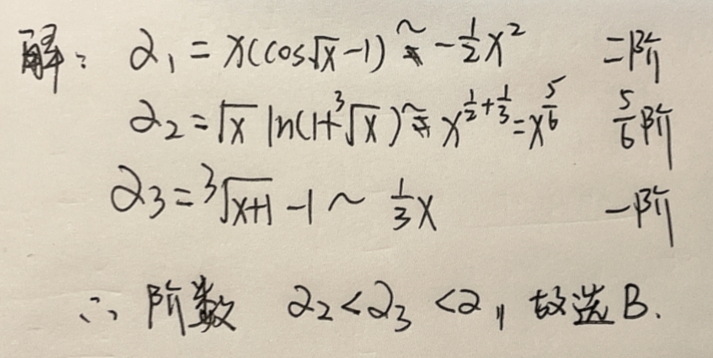 解: α₁ = x(cos√x-1) ~ -½x² 二阶
α₂ = √x ln(1+³√x) ~ x^{1/2+1/3} = x^{5/6} 5/6阶
α₃ = ³√(x+1) -1 ~ ⅓x 一阶
∴ 阶数 α₂<α₃<α₁, 故选B.